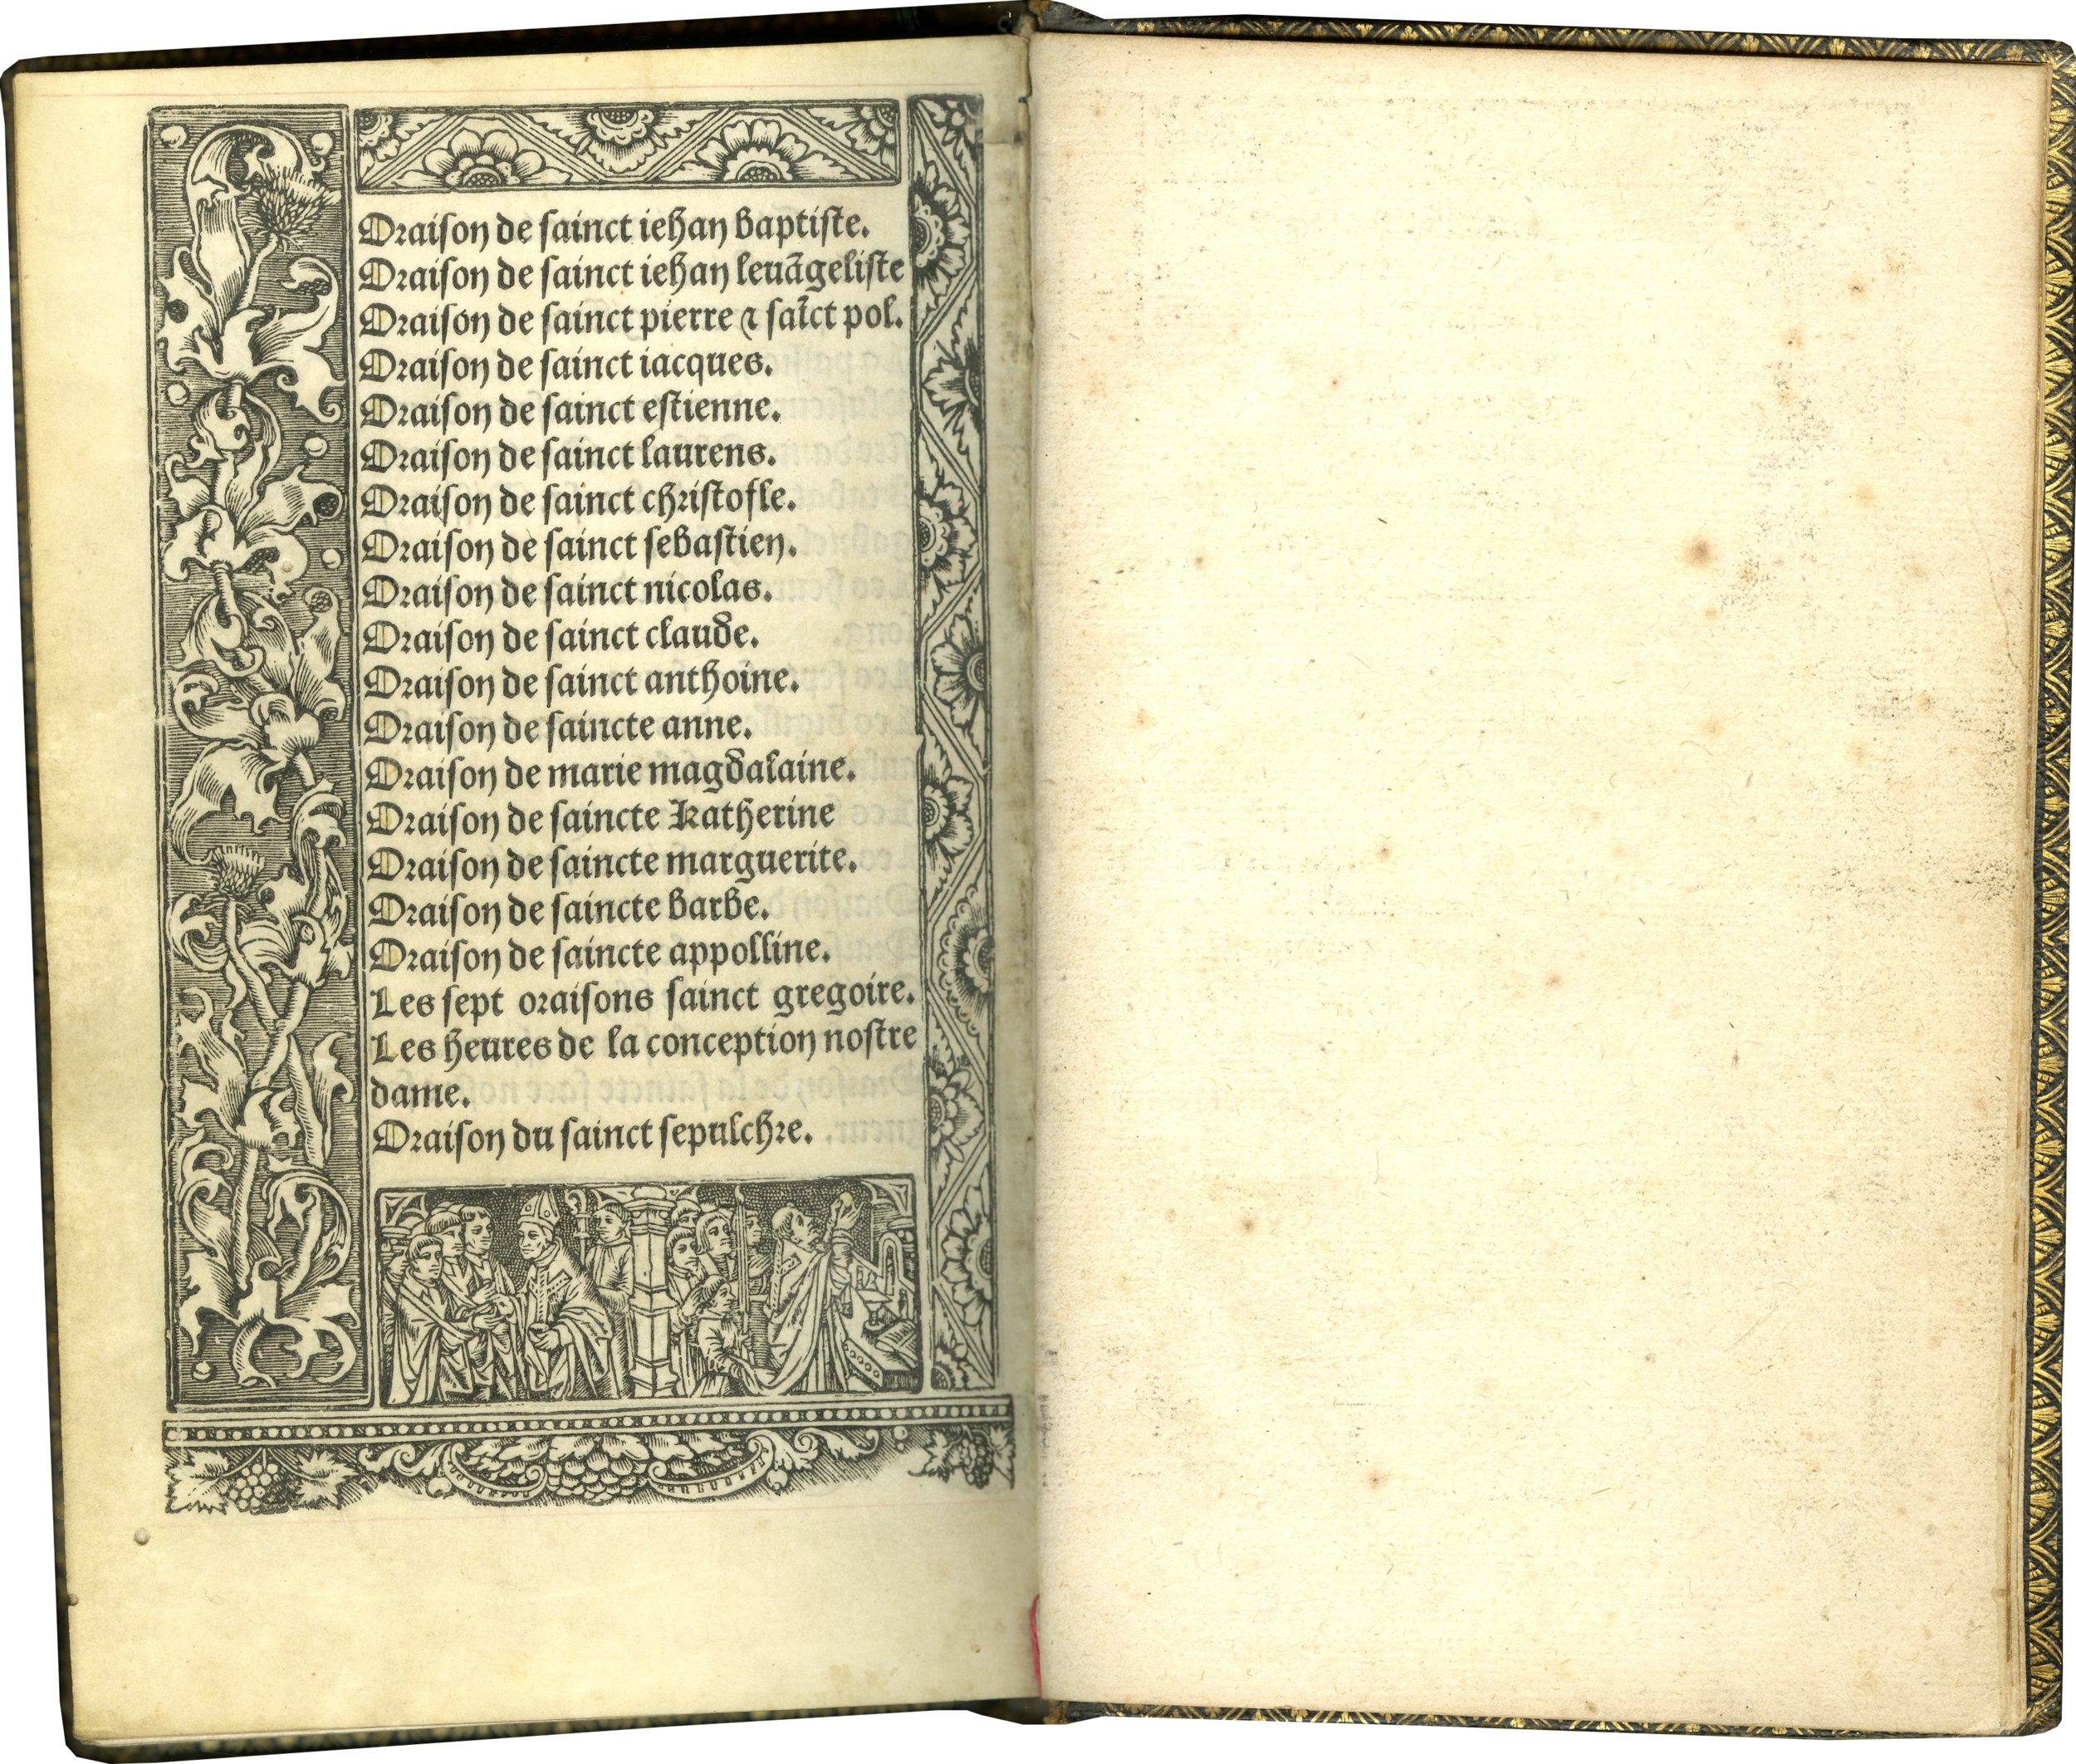 Oraison de sainct iehan baptiste.
Oraison de sainct iehan leuãgeliste
Oraison de sainct pierre ⁊ saĩct pol.
Oraison de sainct iacques.
Oraison de sainct estienne.
Oraison de sainct laurens.
Oraison de sainct christofle.
Oraison de sainct sebastien.
Oraison de sainct nicolas.
Oraison de sainct claude.
Oraison de sainct anthoine.
Oraison de saincte anne.
Oraison de marie magdalaine.
Oraison de saincte katherine
Oraison de saincte marguerite.
Oraison de saincte barbe.
Oraison de saincte appolline.
Les sept oraisons sainct gregoire.
Les heures de la conception nostre
dame.
Oraison du sainct sepulchre.